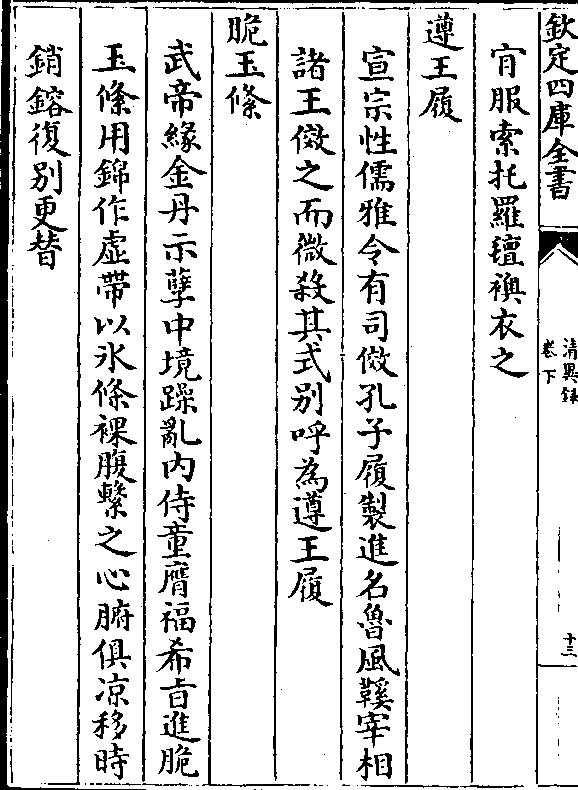 欽定四庫全書
清異録
卷下
十三
宵服索托羅氊襖衣之
遵王履
宣宗性儒雅令有司倣孔子履製進名魯風鞵宰相
諸王傚之而微殺其式别呼為遵王履
脆玉條
武帝緣金丹示孽中境躁亂内侍童膺福希㫖進脆
玉條用錦作虚帶以氷條裸腹繫之心腑俱凉移時
銷鎔復别更替